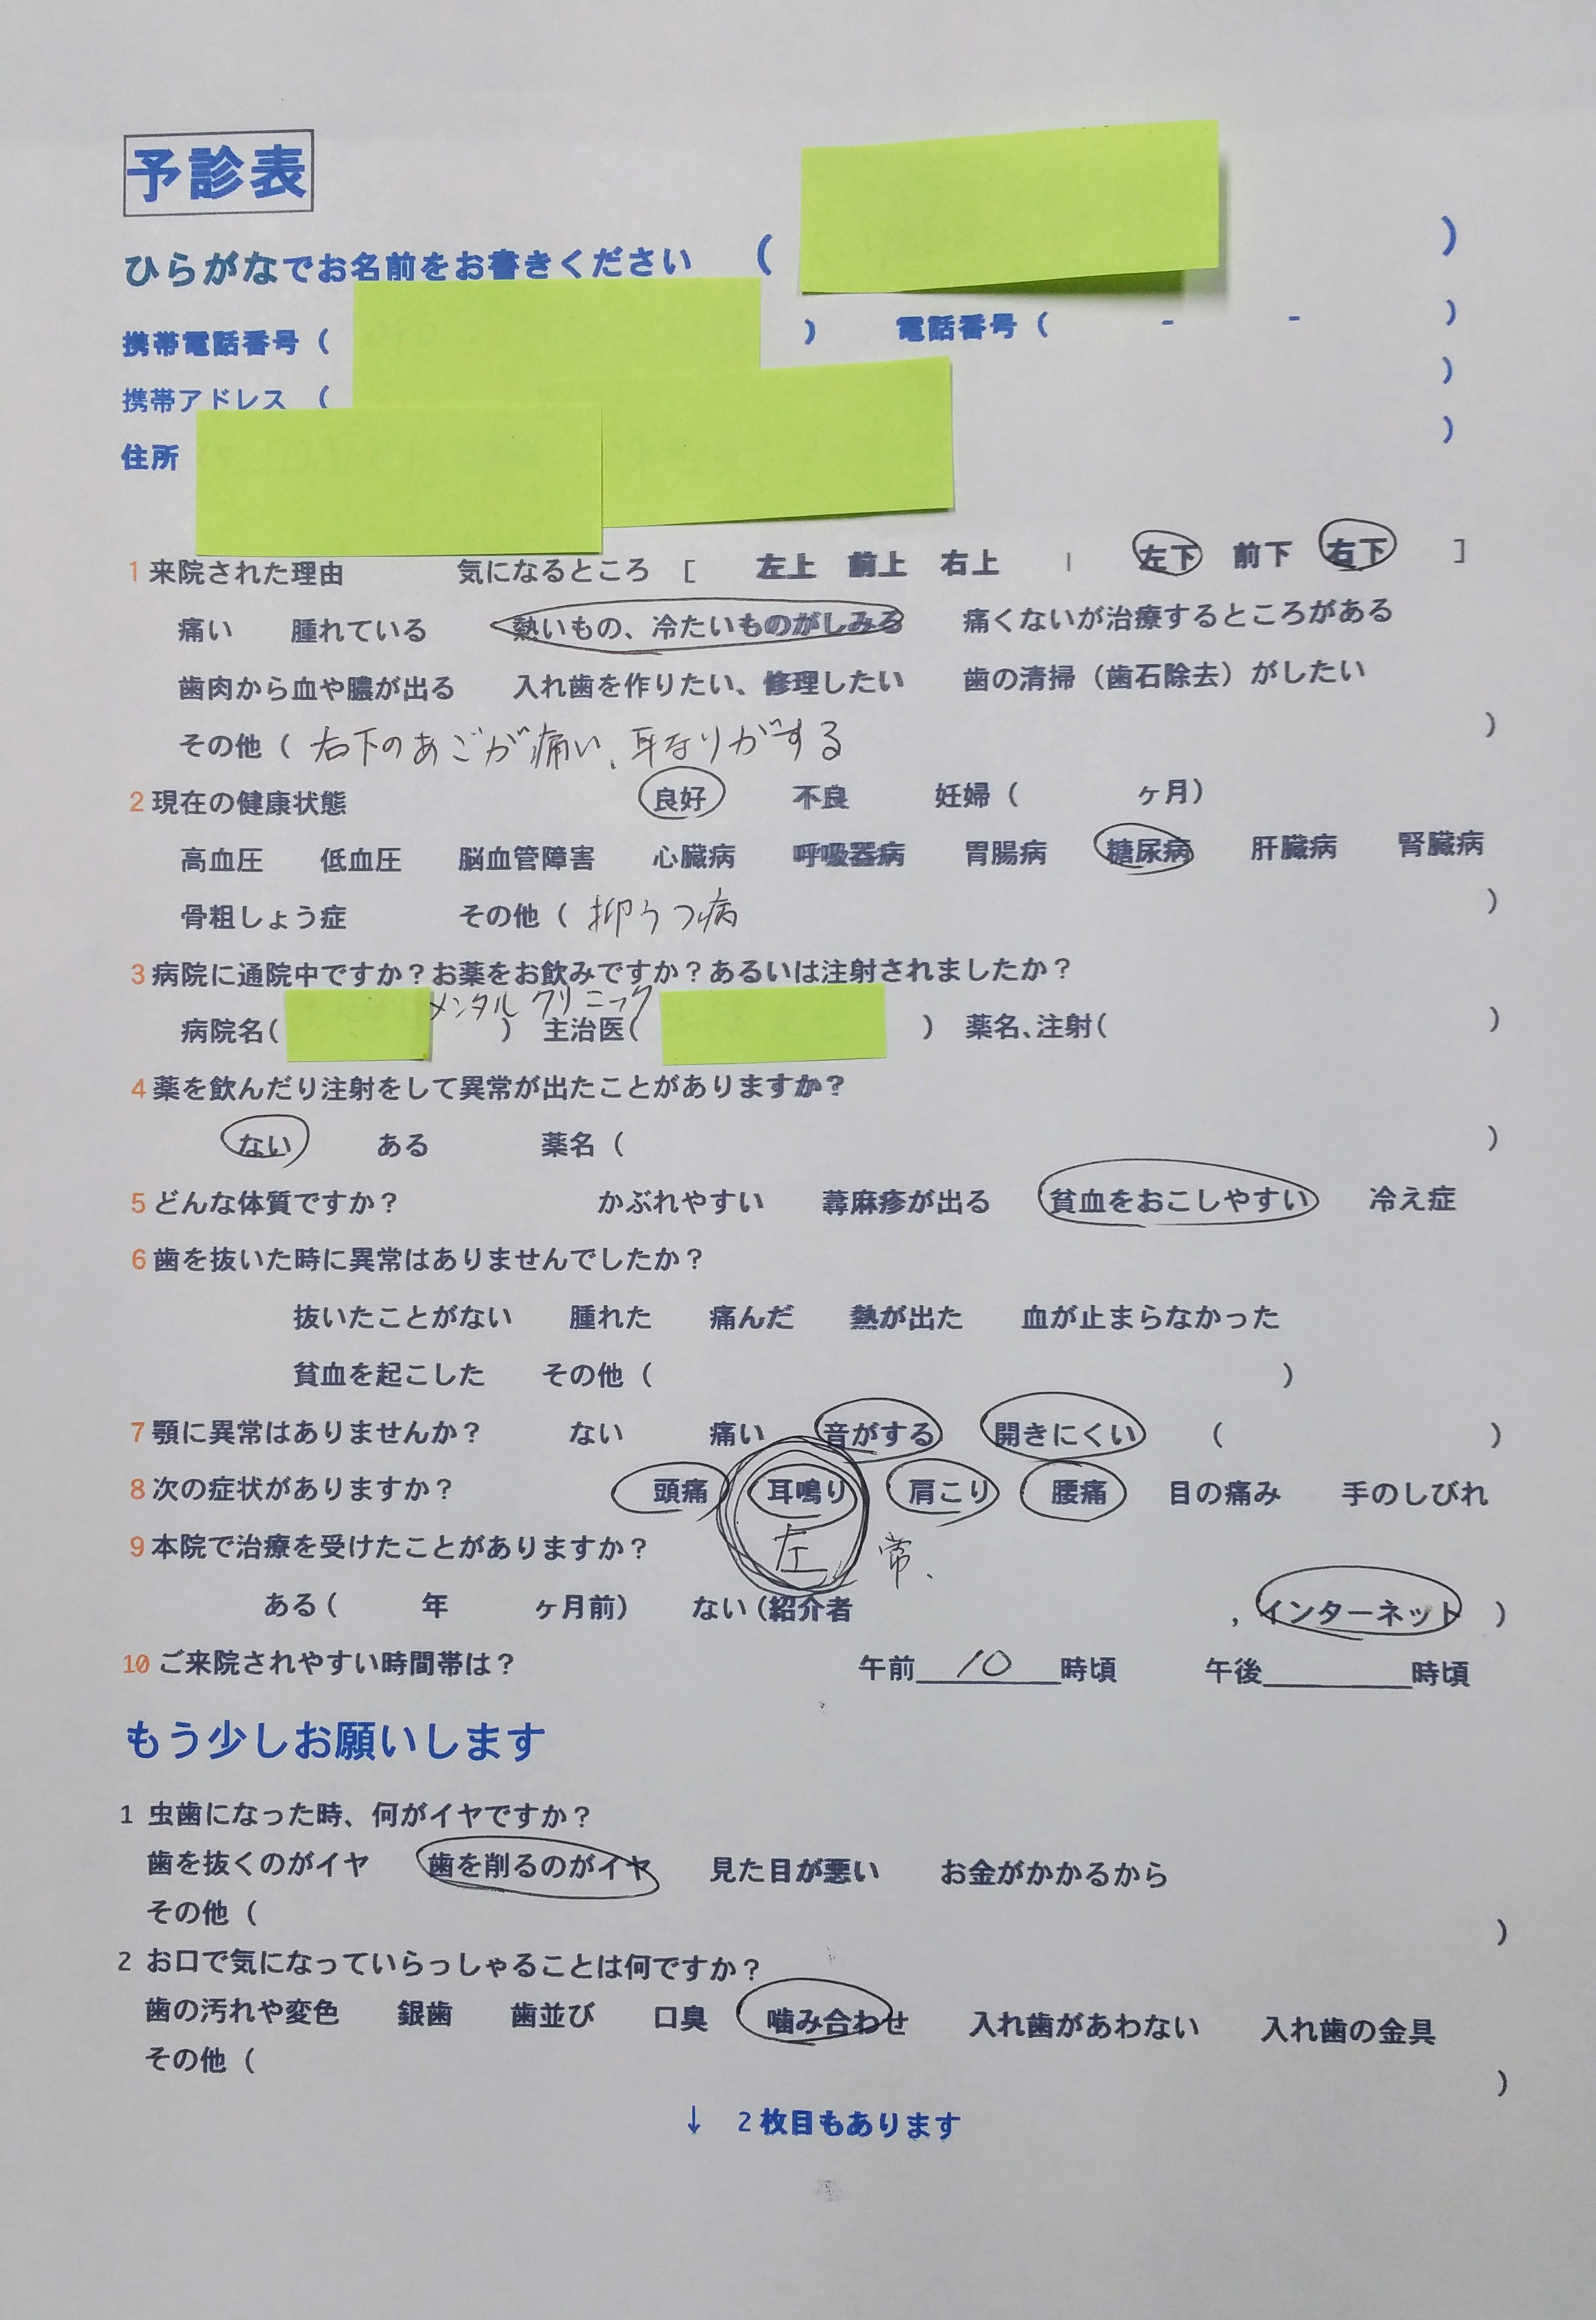 予診表
ひらがなでお名前をお書きください ( )
携帯電話番号 ( ) 電話番号 ( - - )
携帯アドレス ( )
住所 )
1 来院された理由 気になるところ [ 左上 前上 右上 | 左下 前下 右下 ]
痛い 腫れている 熱いもの、冷たいものがしみる 痛くないが治療するところがある
歯肉から血や膿が出る 入れ歯を作りたい、修理したい 歯の清掃（歯石除去）がしたい
その他 ( 右下のあごが痛い、耳なりがする )
2 現在の健康状態 良好 不良 妊婦 ( ヶ月)
高血圧 低血圧 脳血管障害 心臓病 呼吸器病 胃腸病 糖尿病 肝臓病 腎臓病
骨粗しょう症 その他 ( 抑うつ病 )
3 病院に通院中ですか？お薬をお飲みですか？あるいは注射されましたか？
メンタルクリニック
病院名( ) 主治医( ) 薬名、注射( )
4 薬を飲んだり注射をして異常が出たことがありますか？
ない ある 薬名 ( )
5 どんな体質ですか？ かぶれやすい 蕁麻疹が出る 貧血をおこしやすい 冷え症
6 歯を抜いた時に異常はありませんでしたか？
抜いたことがない 腫れた 痛んだ 熱が出た 血が止まらなかった
貧血を起こした その他 ( )
7 顎に異常はありませんか？ ない 痛い 音がする 開きにくい ( )
8 次の症状がありますか？ 頭痛 耳鳴り 肩こり 腰痛 目の痛み 手のしびれ
9 本院で治療を受けたことがありますか？ 左 常、
ある ( 年 ヶ月前) ない (紹介者 , インターネット )
10 ご来院されやすい時間帯は？ 午前 10 時頃 午後 時頃
もう少しお願いします
1 虫歯になった時、何がイヤですか？
歯を抜くのがイヤ 歯を削るのがイヤ 見た目が悪い お金がかかるから
その他 ( )
2 お口で気になっていらっしゃることは何ですか？
歯の汚れや変色 銀歯 歯並び 口臭 噛み合わせ 入れ歯があわない 入れ歯の金具
その他 ( )
↓ 2枚目もあります